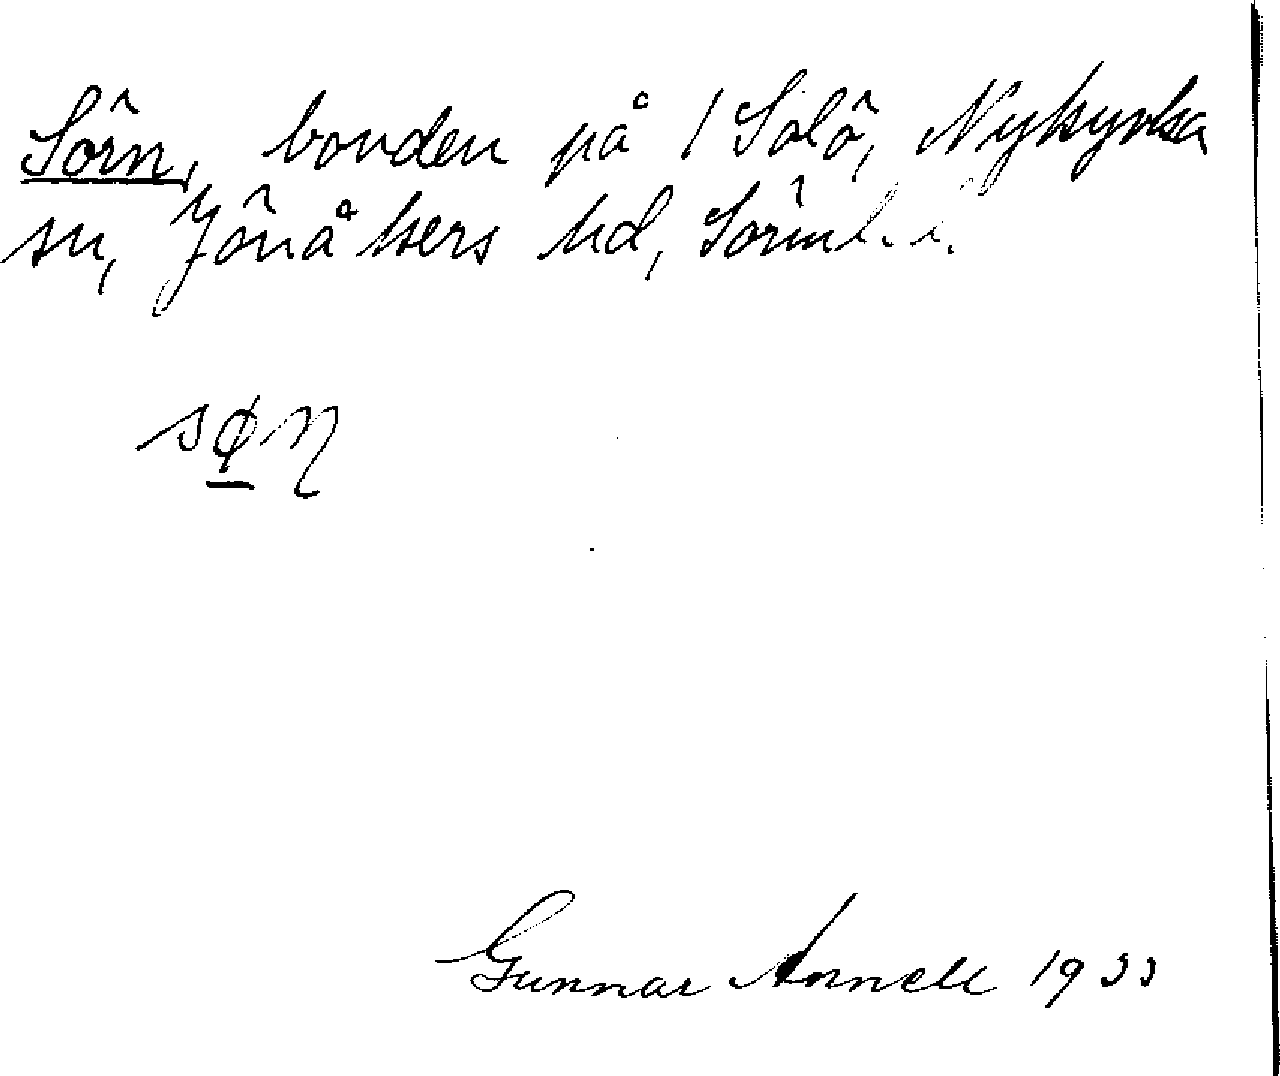 Sörn, bonden på 1 Solö, Nykyrka
sn, Jönåkers hd, Sörml.
søn
Gunnar Arnell 1933